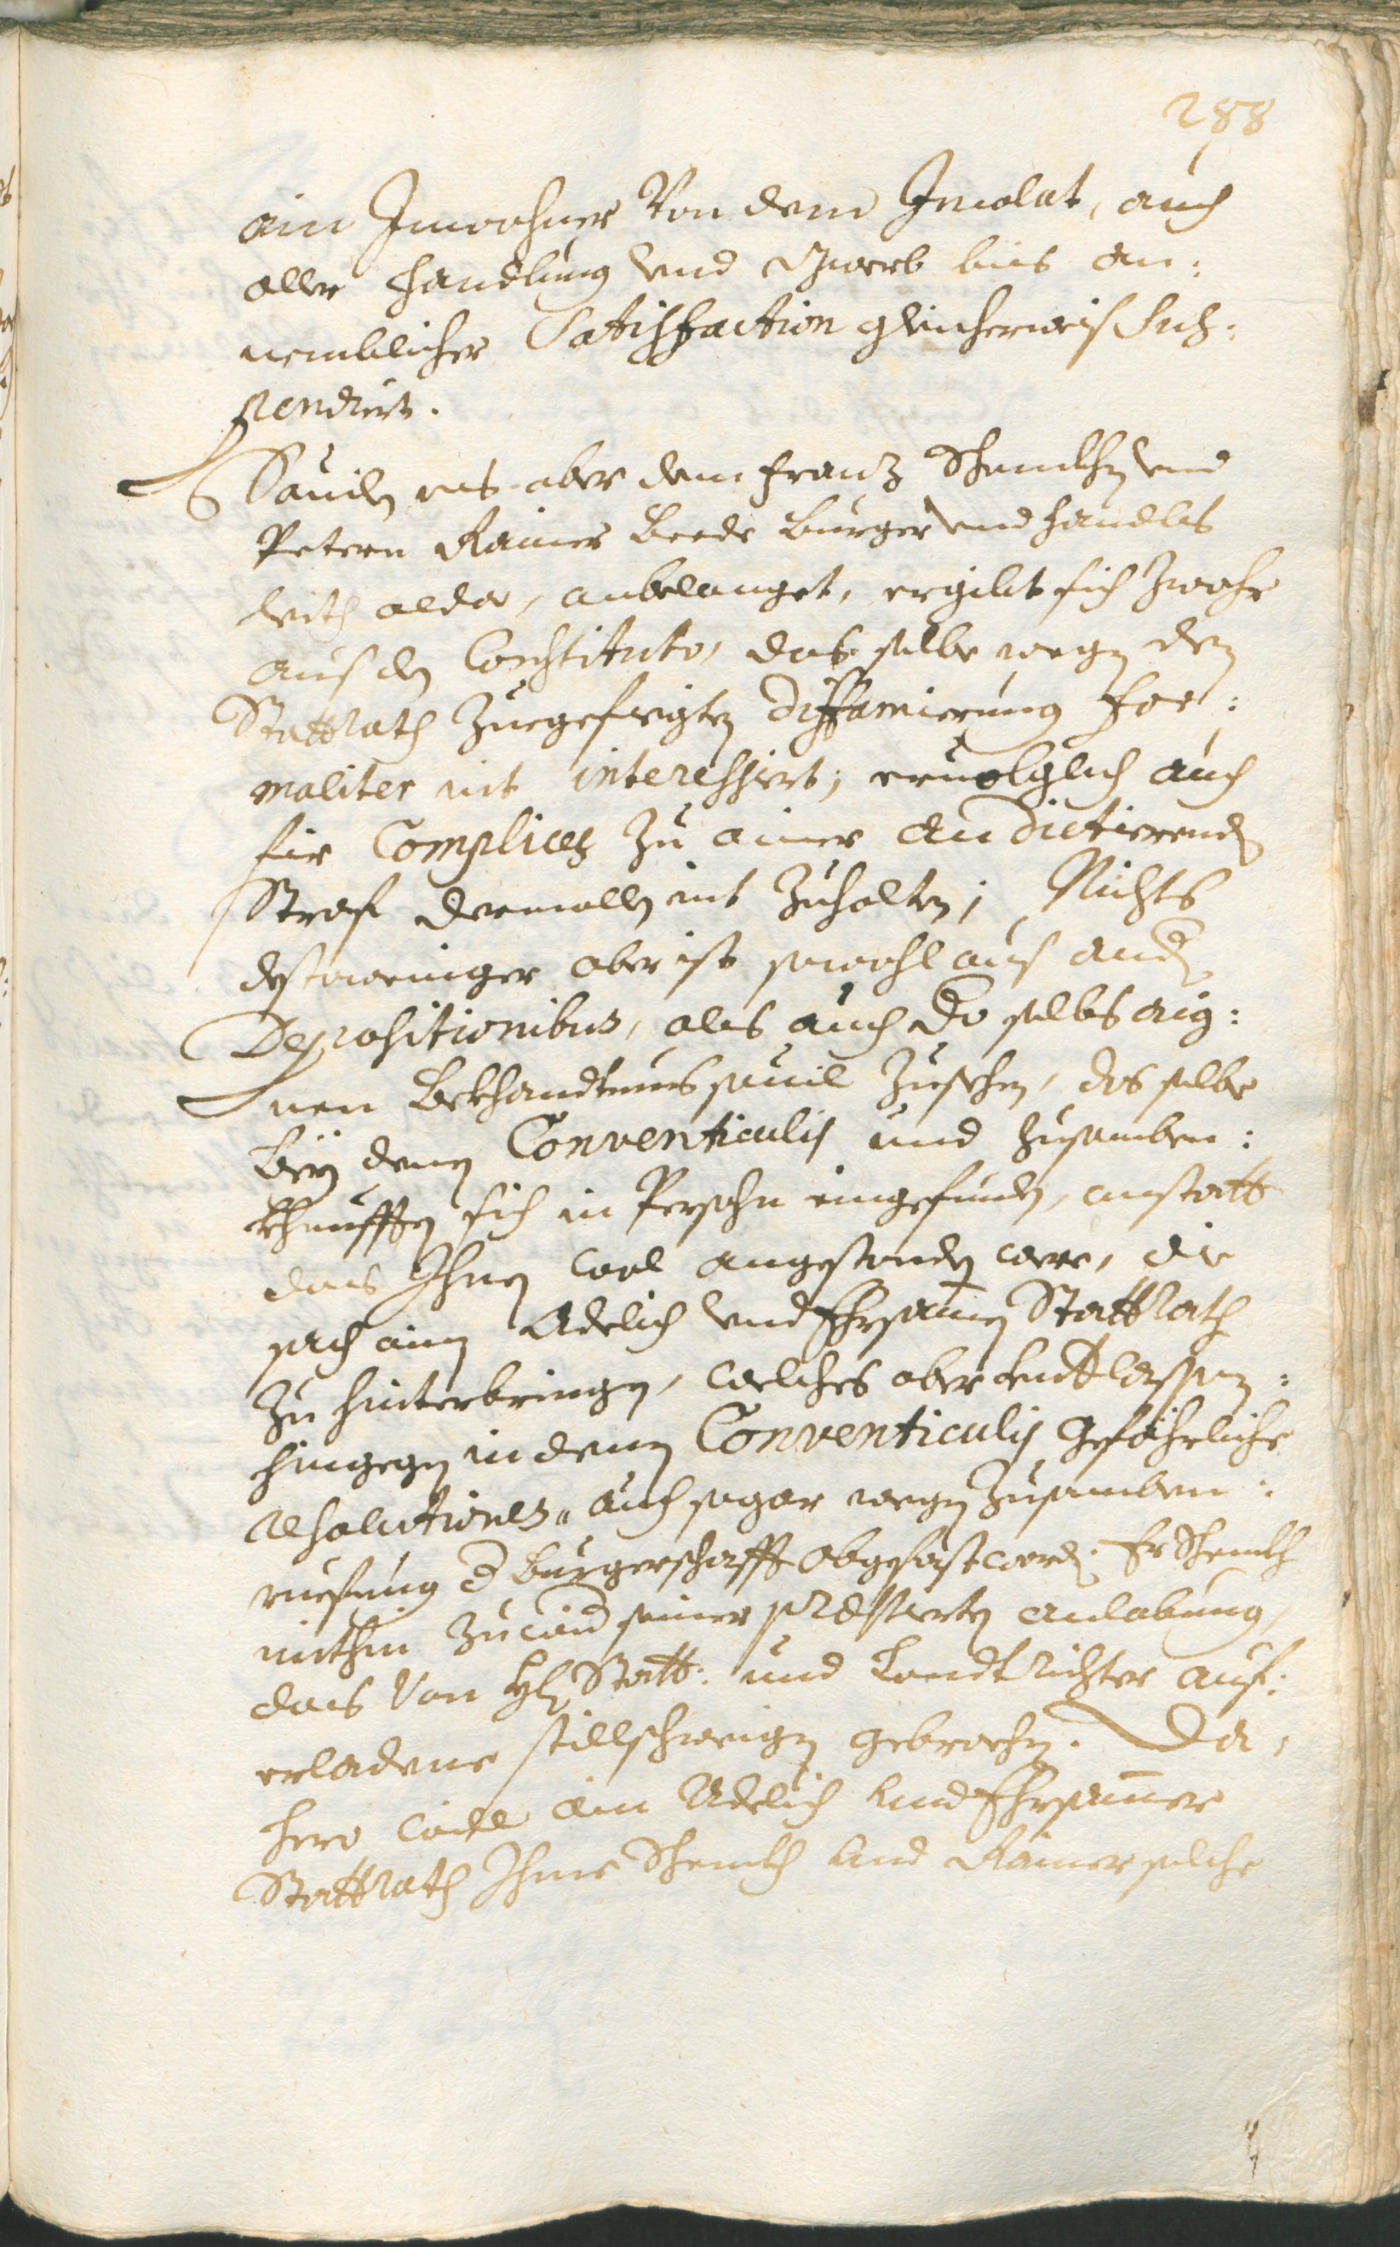 288
ain Inwohner Von dem Incolat, auch
aller handlung und Gwerb bis an:
nemblicher Satisfaction gleicherweis Sus:
pendiert.
Sovil es aber dem Franz Schmelch und
Petern Rainer beede burger und handls
leith alda, anbelanget, ergibt sich zwahr
aus den Constituto, das selbe wegen dem
Stattrath zuegefiegten Diffamierung for:
maliter nit interessiert; ervolglich auch
für Complices zu ainer an dictierenden
Straf dermallen nit zuhalten; Nichts
destoweniger aber ist sowohl aus andern
Depositionibus, als auch do selbs aig:
nen bekhandtnus sovil zusehen, das selbe
bey denen Conventiculis und zusamben:
khunfften sich in Persohn eingefunden, anstatt
das Ihnen wol angestanden were, die
sach ainem Adelich und Ehrsamen Stattrath
zu hinterbringen, welches aber unterlassen:
hingegen in denen Conventiculis gefährliche
resolutiones, auch sogar wegen zusamben:
rueffung der burgerschafft abgefast worden. Er Schmelch
mithin zuwider seiner praestierten anlobung,
das Von Hl: Statt: und Landtrichter auf:
erladene stillschweigen gebrochen. Da,
hero will ain Adelich und Ehrsamer
Stattrath Ihme Schmelch und Rainer solche